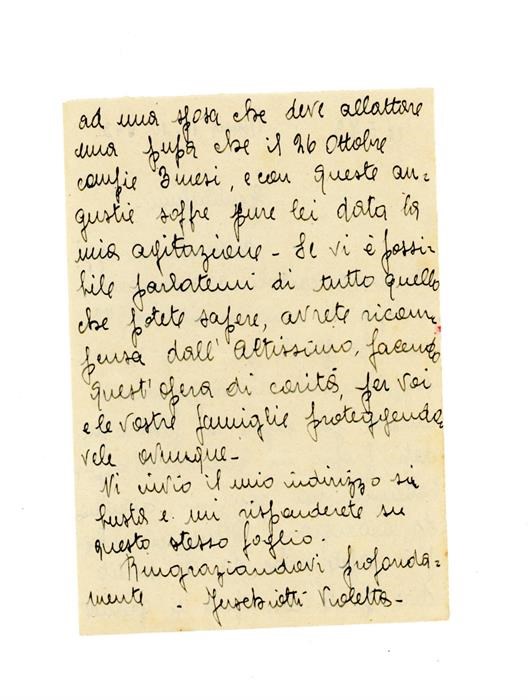 ad una sposa che deve allattare
una pupa che il 26 Ottobre
compie 3 mesi, e con queste an=
gustie soffre pure lei data la
mia agitazione - Se vi è possi=
bile parlatemi di tutto quello
che potete sapere, avrete ricom
pensa dall' Altissimo, facendo
quest'opera di carità, per voi
e le vostre famiglie proteggendo
vele ovunque -
Vi invio il mio indirizzo su
busta e mi risponderete su
questo stesso foglio.
Ringraziandovi profonda=
mente - Violetta -